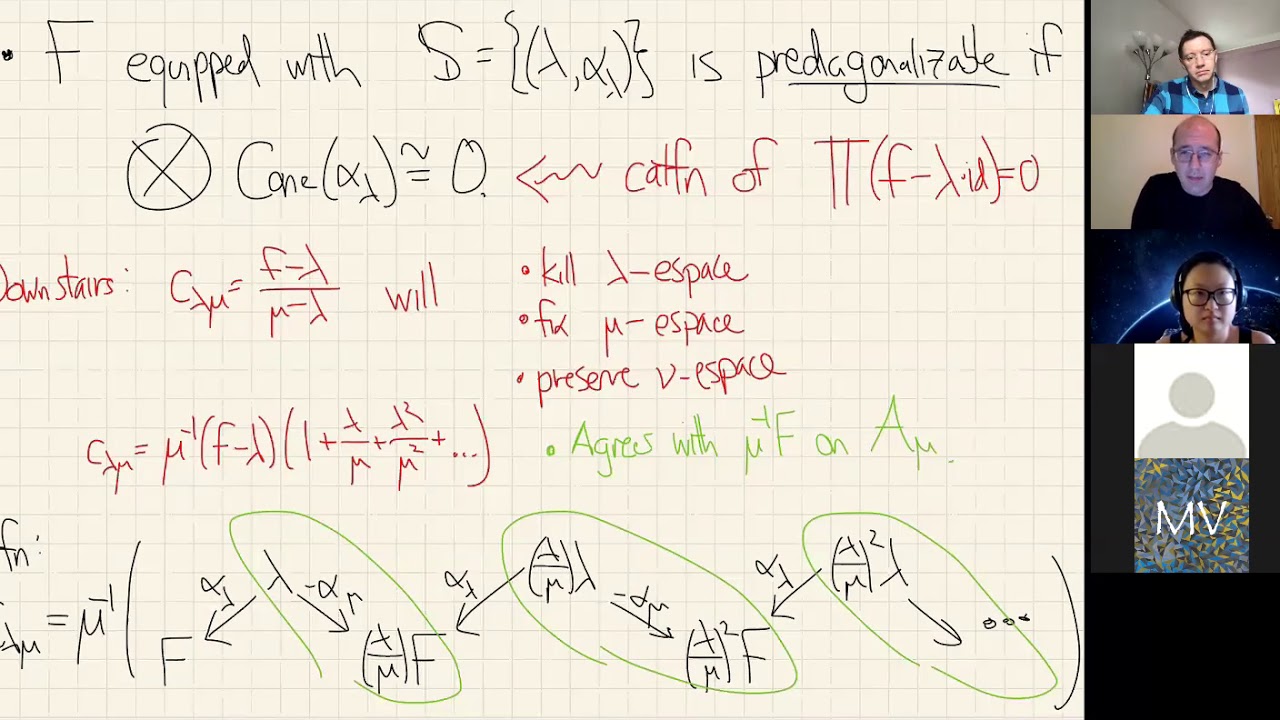 • F equipped with S = {(λ, α_λ)} is prediagonalizable if
⊗ Cone(α_λ) ≃ 0. ⇜ catfn of ∏(f − λ·id) = 0
Downstairs: C_λμ = (f − λ)/(μ − λ) will
• kill λ-espace
• fix μ-espace
• preserve ν-espace
C_λμ = μ⁻¹(f − λ)(1 + λ/μ + λ²/μ² + ...)
• Agrees with μ⁻¹F on A_μ.
fn:
λμ = μ⁻¹ (
α_λ λ −α_μ α_λ (λ/μ)λ −α_μ α_λ (λ/μ)²λ
F (λ/μ)F (λ/μ)²F ... )
MV